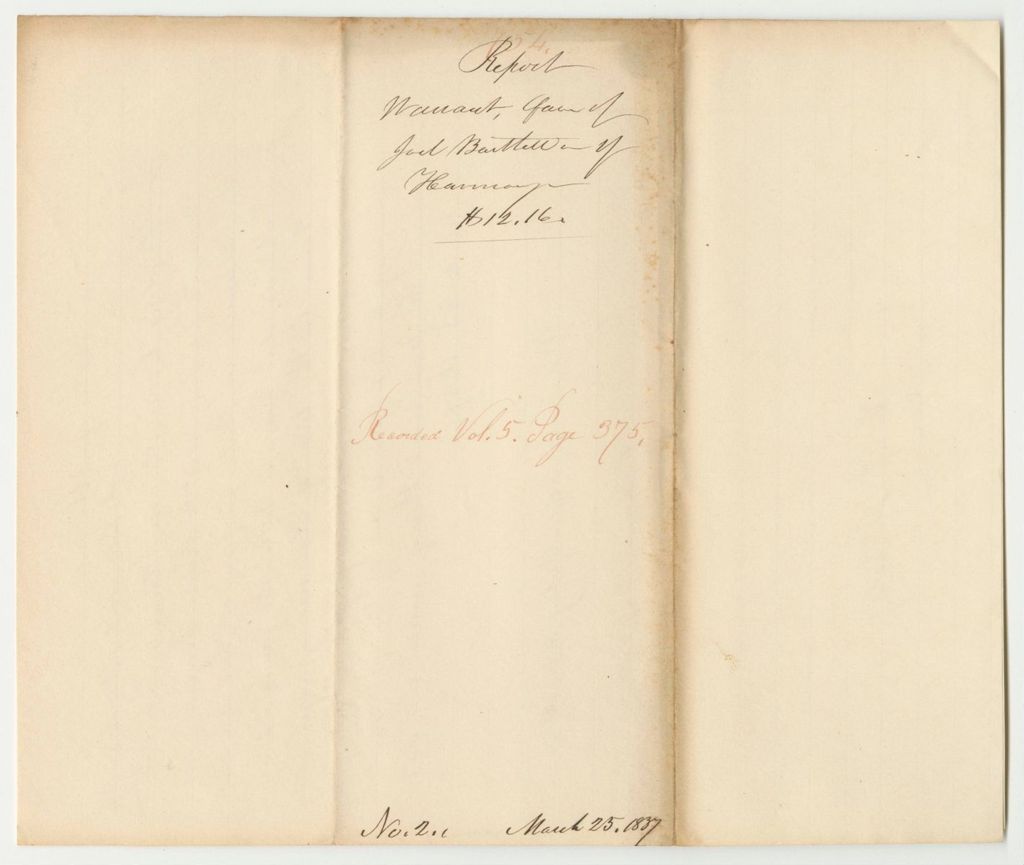 54.
Report
Warrant, favor of
Joel Bartlett of
Harmony
$12.16.
Recorded Vol. 5. Page 375.
No. 2. March 25. 1837